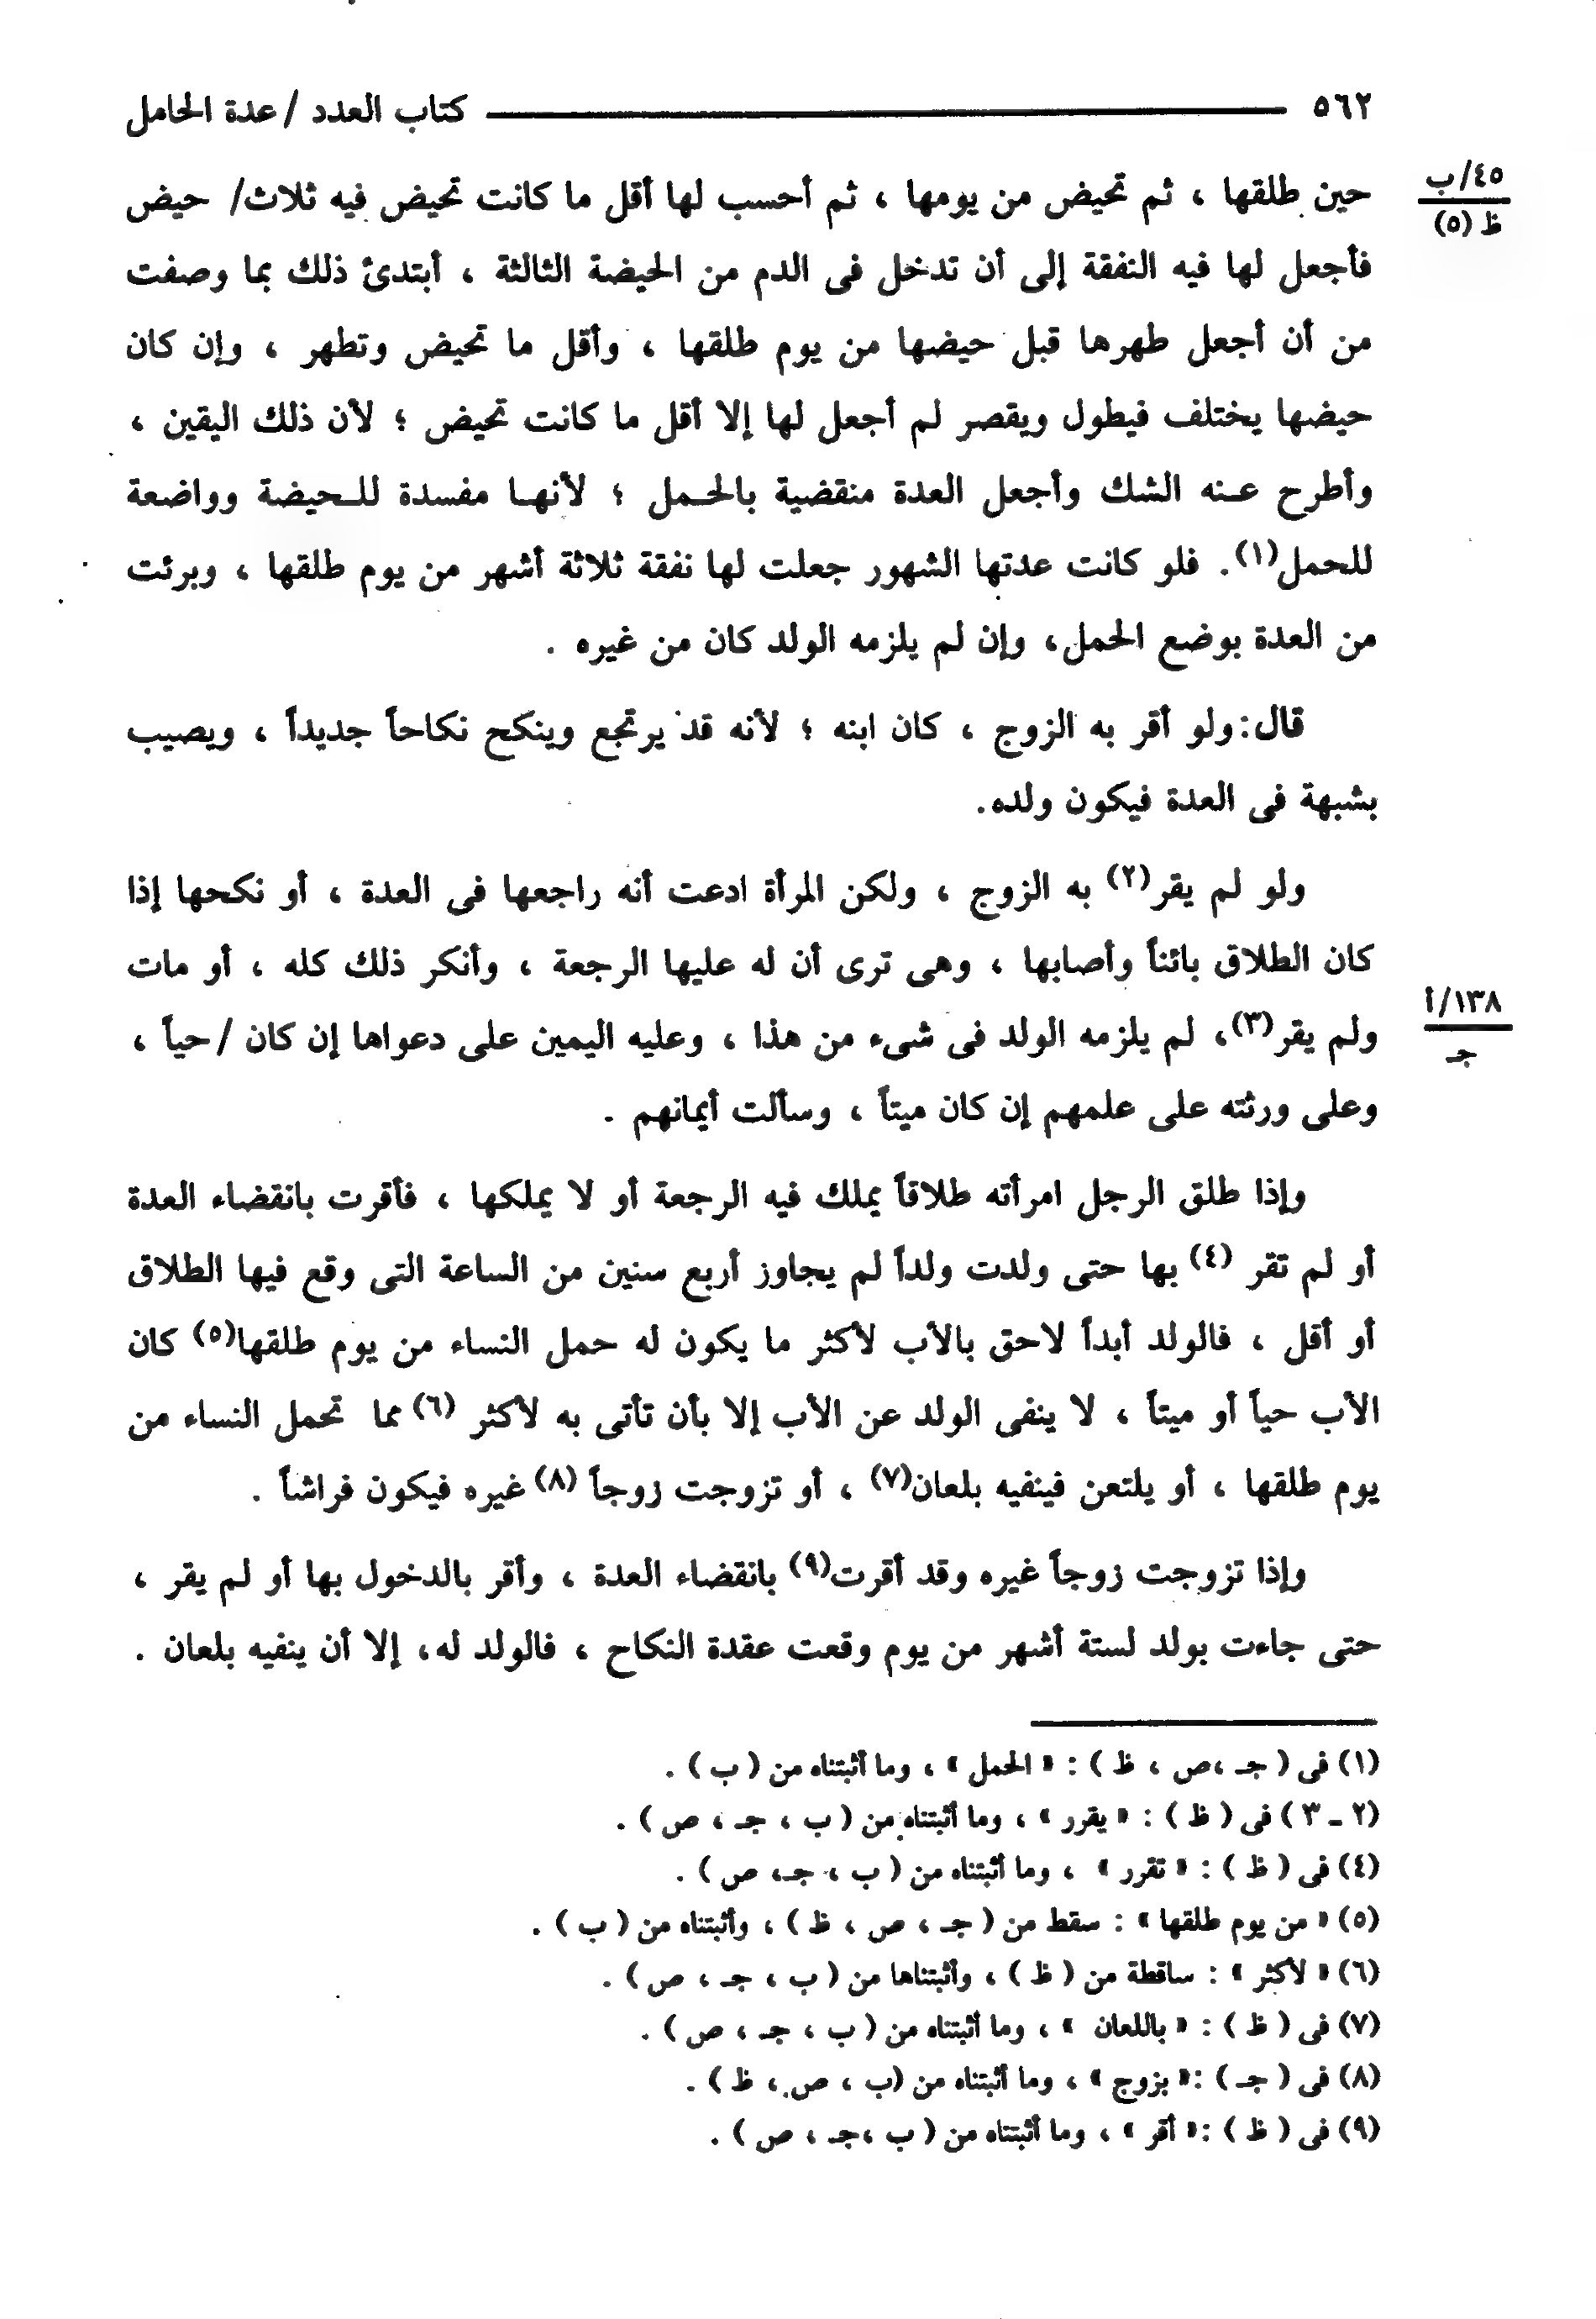 ٥٦٢ كتاب العدد / عدة الحامل
٤٥/ب
ظ (٥)
حين طلقها ، ثم تحيض من يومها ، ثم أحسب لها أقل ما كانت تحيض فيه ثلاث/ حيض
فأجعل لها فيه النفقة إلى أن تدخل فى الدم من الحيضة الثالثة ، أبتدئ ذلك بما وصفت
من أن أجعل طهرها قبل حيضها من يوم طلقها ، وأقل ما تحيض وتطهر ، وإن كان
حيضها يختلف فيطول ويقصر لم أجعل لها إلا أقل ما كانت تحيض ؛ لأن ذلك اليقين ،
وأطرح عـنه الشك وأجعل العدة منقضية بالحـمل ؛ لأنهـا مفسدة للـحيضة وواضعة
للحمل(١). فلو كانت عدتها الشهور جعلت لها نفقة ثلاثة أشهر من يوم طلقها ، وبرئت
من العدة بوضع الحمل، وإن لم يلزمه الولد كان من غيره .
قال: ولو أقر به الزوج ، كان ابنه ؛ لأنه قد يرتجع وينكح نكاحاً جديداً ، ويصيب
بشبهة فى العدة فيكون ولده.
ولو لم يقر(٢) به الزوج ، ولكن المرأة ادعت أنه راجعها فى العدة ، أو نكحها إذا
كان الطلاق بائناً وأصابها ، وهى ترى أن له عليها الرجعة ، وأنكر ذلك كله ، أو مات
١٣٨/أ
جـ
ولم يقر(٣)، لم يلزمه الولد فى شىء من هذا ، وعليه اليمين على دعواها إن كان / حياً ،
وعلى ورثته على علمهم إن كان ميتاً ، وسألت أيمانهم .
وإذا طلق الرجل امرأته طلاقاً يملك فيه الرجعة أو لا يملكها ، فأقرت بانقضاء العدة
أو لم تقر (٤) بها حتى ولدت ولداً لم يجاوز أربع سنين من الساعة التى وقع فيها الطلاق
أو أقل ، فالولد أبداً لاحق بالأب لأكثر ما يكون له حمل النساء من يوم طلقها(٥) كان
الأب حياً أو ميتاً ، لا ينفى الولد عن الأب إلا بأن تأتى به لأكثر (٦) مما تحمل النساء من
يوم طلقها ، أو يلتعن فينفيه بلعان(٧) ، أو تزوجت زوجاً (٨) غيره فيكون فراشاً .
وإذا تزوجت زوجاً غيره وقد أقرت(٩) بانقضاء العدة ، وأقر بالدخول بها أو لم يقر ،
حتى جاءت بولد لستة أشهر من يوم وقعت عقدة النكاح ، فالولد له، إلا أن ينفيه بلعان .
(١) فى ( جـ ،ص ، ظ ) : « الحمل » ، وما أثبتناه من ( ب ) .
(٢ ـ ٣ ) فى ( ظ ) : « يقرر » ، وما أثبتناه من ( ب ، جـ ، ص ) .
(٤) فى ( ظ ) : « تقرر » ، وما أثبتناه من ( ب ، جـ، ص ) .
(٥) « من يوم طلقها » : سقط من ( جـ ، ص ، ظ ) ، وأثبتناه من ( ب ) .
(٦) « لأكثر » : ساقطة من ( ظ ) ، وأثبتناها من ( ب ، جـ ، ص ) .
(٧) فى ( ظ ) : « باللعان » ، وما أثبتناه من ( ب ، جـ ، ص ) .
(٨) فى ( جـ ) :« بزوج » ، وما أثبتناه من (ب ، ص ، ظ ) .
(٩) فى ( ظ ) :« أقر » ، وما أثبتناه من ( ب ،جـ ، ص ) .